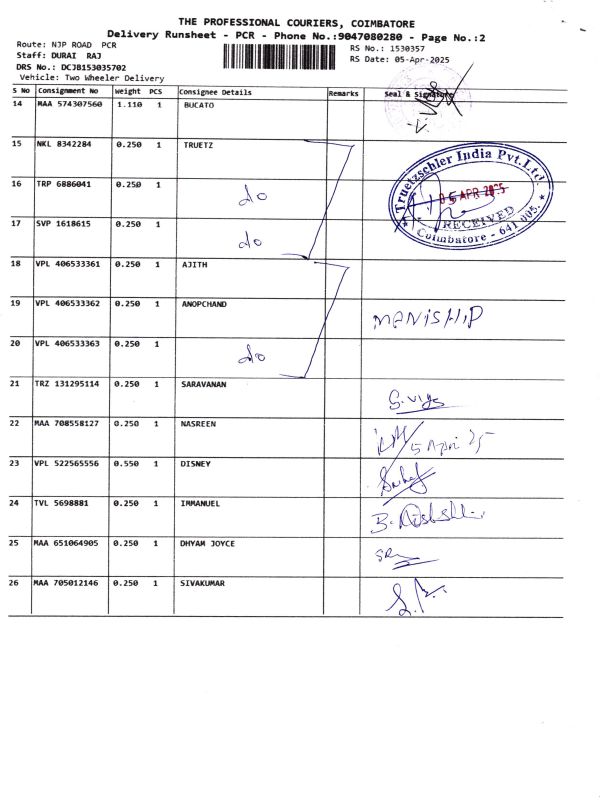 THE PROFESSIONAL COURIERS, COIMBATORE
Delivery Runsheet - PCR - Phone No.:9047080280 - Page No.:2
Route: NJP ROAD PCR
RS No.: 1530357
Staff: DURAI RAJ
RS Date: 05-Apr-2025
DRS No.: DCJB153035702
Vehicle: Two Wheeler Delivery
S No Consignment No Weight PCS Consignee Details Remarks Seal & Signature
14 MAA 574307560 1.110 1 BUCATO
15 NKL 8342284 0.250 1 TRUETZ
16 TRP 6886041 0.250 1 do
17 SVP 1618615 0.250 1 do
Truetzschler India Pvt.Ltd.
05 APR 2025
RECEIVED
Coimbatore - 641 005.
18 VPL 406533361 0.250 1 AJITH
19 VPL 406533362 0.250 1 ANOPCHAND MANISH.P
20 VPL 406533363 0.250 1 do
21 TRZ 131295114 0.250 1 SARAVANAN
22 MAA 708558127 0.250 1 NASREEN 5 April 25
23 VPL 522565556 0.550 1 DISNEY
24 TVL 5698881 0.250 1 IMMANUEL
25 MAA 651064905 0.250 1 DHYAM JOYCE
26 MAA 705012146 0.250 1 SIVAKUMAR